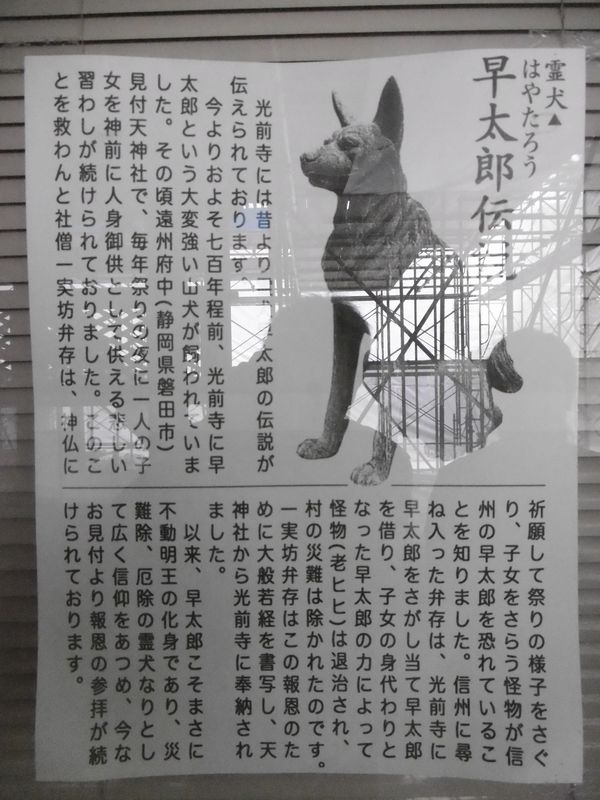 霊犬▲
はやたろう
早太郎伝説
光前寺には昔より 早太郎の伝説が
伝えられております。
今よりおよそ七百年程前、光前寺に早
太郎という大変強い山犬が飼われていま
した。その頃遠州府中(静岡県磐田市)
見付天神社で、毎年祭りの夜に一人の子
女を神前に人身御供として供える悲しい
習わしが続けられておりました。このこ
とを救わんと社僧一実坊弁存は、神仏に
祈願して祭りの様子をさぐ
り、子女をさらう怪物が信
州の早太郎を恐れているこ
とを知りました。信州に尋
ね入った弁存は、光前寺に
早太郎をさがし当て早太郎
を借り、子女の身代わりと
なった早太郎の力によって
怪物(老ヒヒ)は退治され、
村の災難は除かれたのです。
一実坊弁存はこの報恩のた
めに大般若経を書写し、天
神社から光前寺に奉納され
ました。
以来、早太郎こそまさに
不動明王の化身であり、災
難除、厄除の霊犬なりとし
て広く信仰をあつめ、今な
お見付より報恩の参拝が続
けられております。